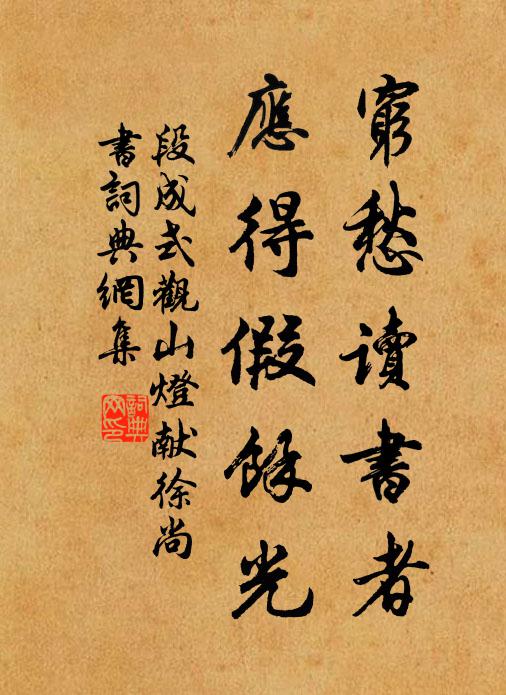 窮愁讀書者
應得假餘光
段成式觀山燈献徐尚
書詞典網集
詞典
网印